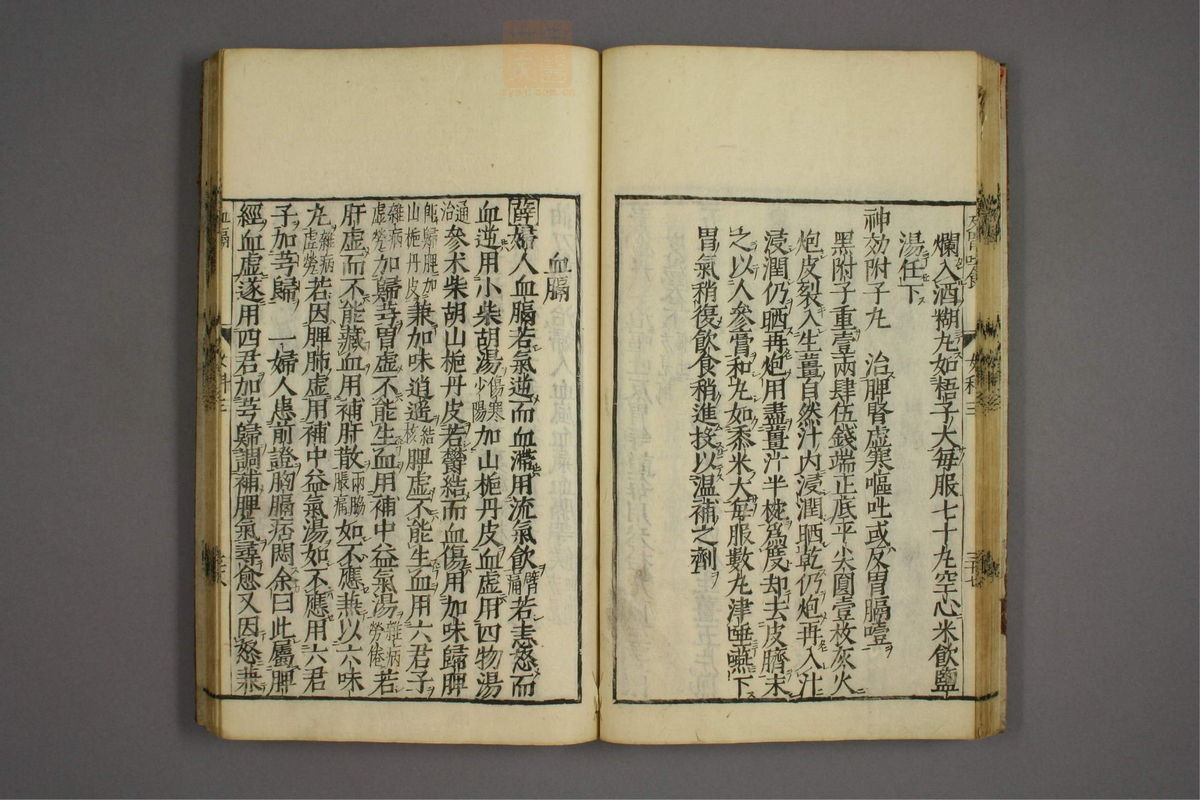 爛入酒糊丸如梧子大每服七十丸空心米飲鹽
湯任下
神効附子丸 治脾腎虛寒嘔吐或反胃膈噎
黑附子重壹兩肆伍錢端正底平尖圓壹枚灰火
炮皮裂入生薑自然汁内浸潤晒乾仍炮再入汁
浸潤仍晒再炮用盡薑汁半椀為度却去皮臍末
之以人參膏和丸如黍米大每服數丸津唾嚥下
胃氣稍復飲食稍進投以温補之劑
血膈
薛婦人血膈若氣逆而血滯用流氣飲若恚怒而
血逆用小柴胡湯傷寒少陽加山梔丹皮血虛用四物湯
通治參术柴胡山梔丹皮若鬱結而血傷用加味歸脾
即歸脾加山梔丹皮兼加味逍遙結核脾虛不能生血用六君子
雜病虛勞加歸芎胃虛不能生血用補中益氣湯雜病勞倦若
肝虛而不能藏血用補肝散兩脇脹痛如不應兼以六味
丸雜病虛勞若因脾肺虛用補中益氣湯如不應用六君
子加芎歸 一婦人患前證胸膈痞悶余曰此屬脾
經血虛遂用四君加芎歸調補脾氣尋愈又因怒兼